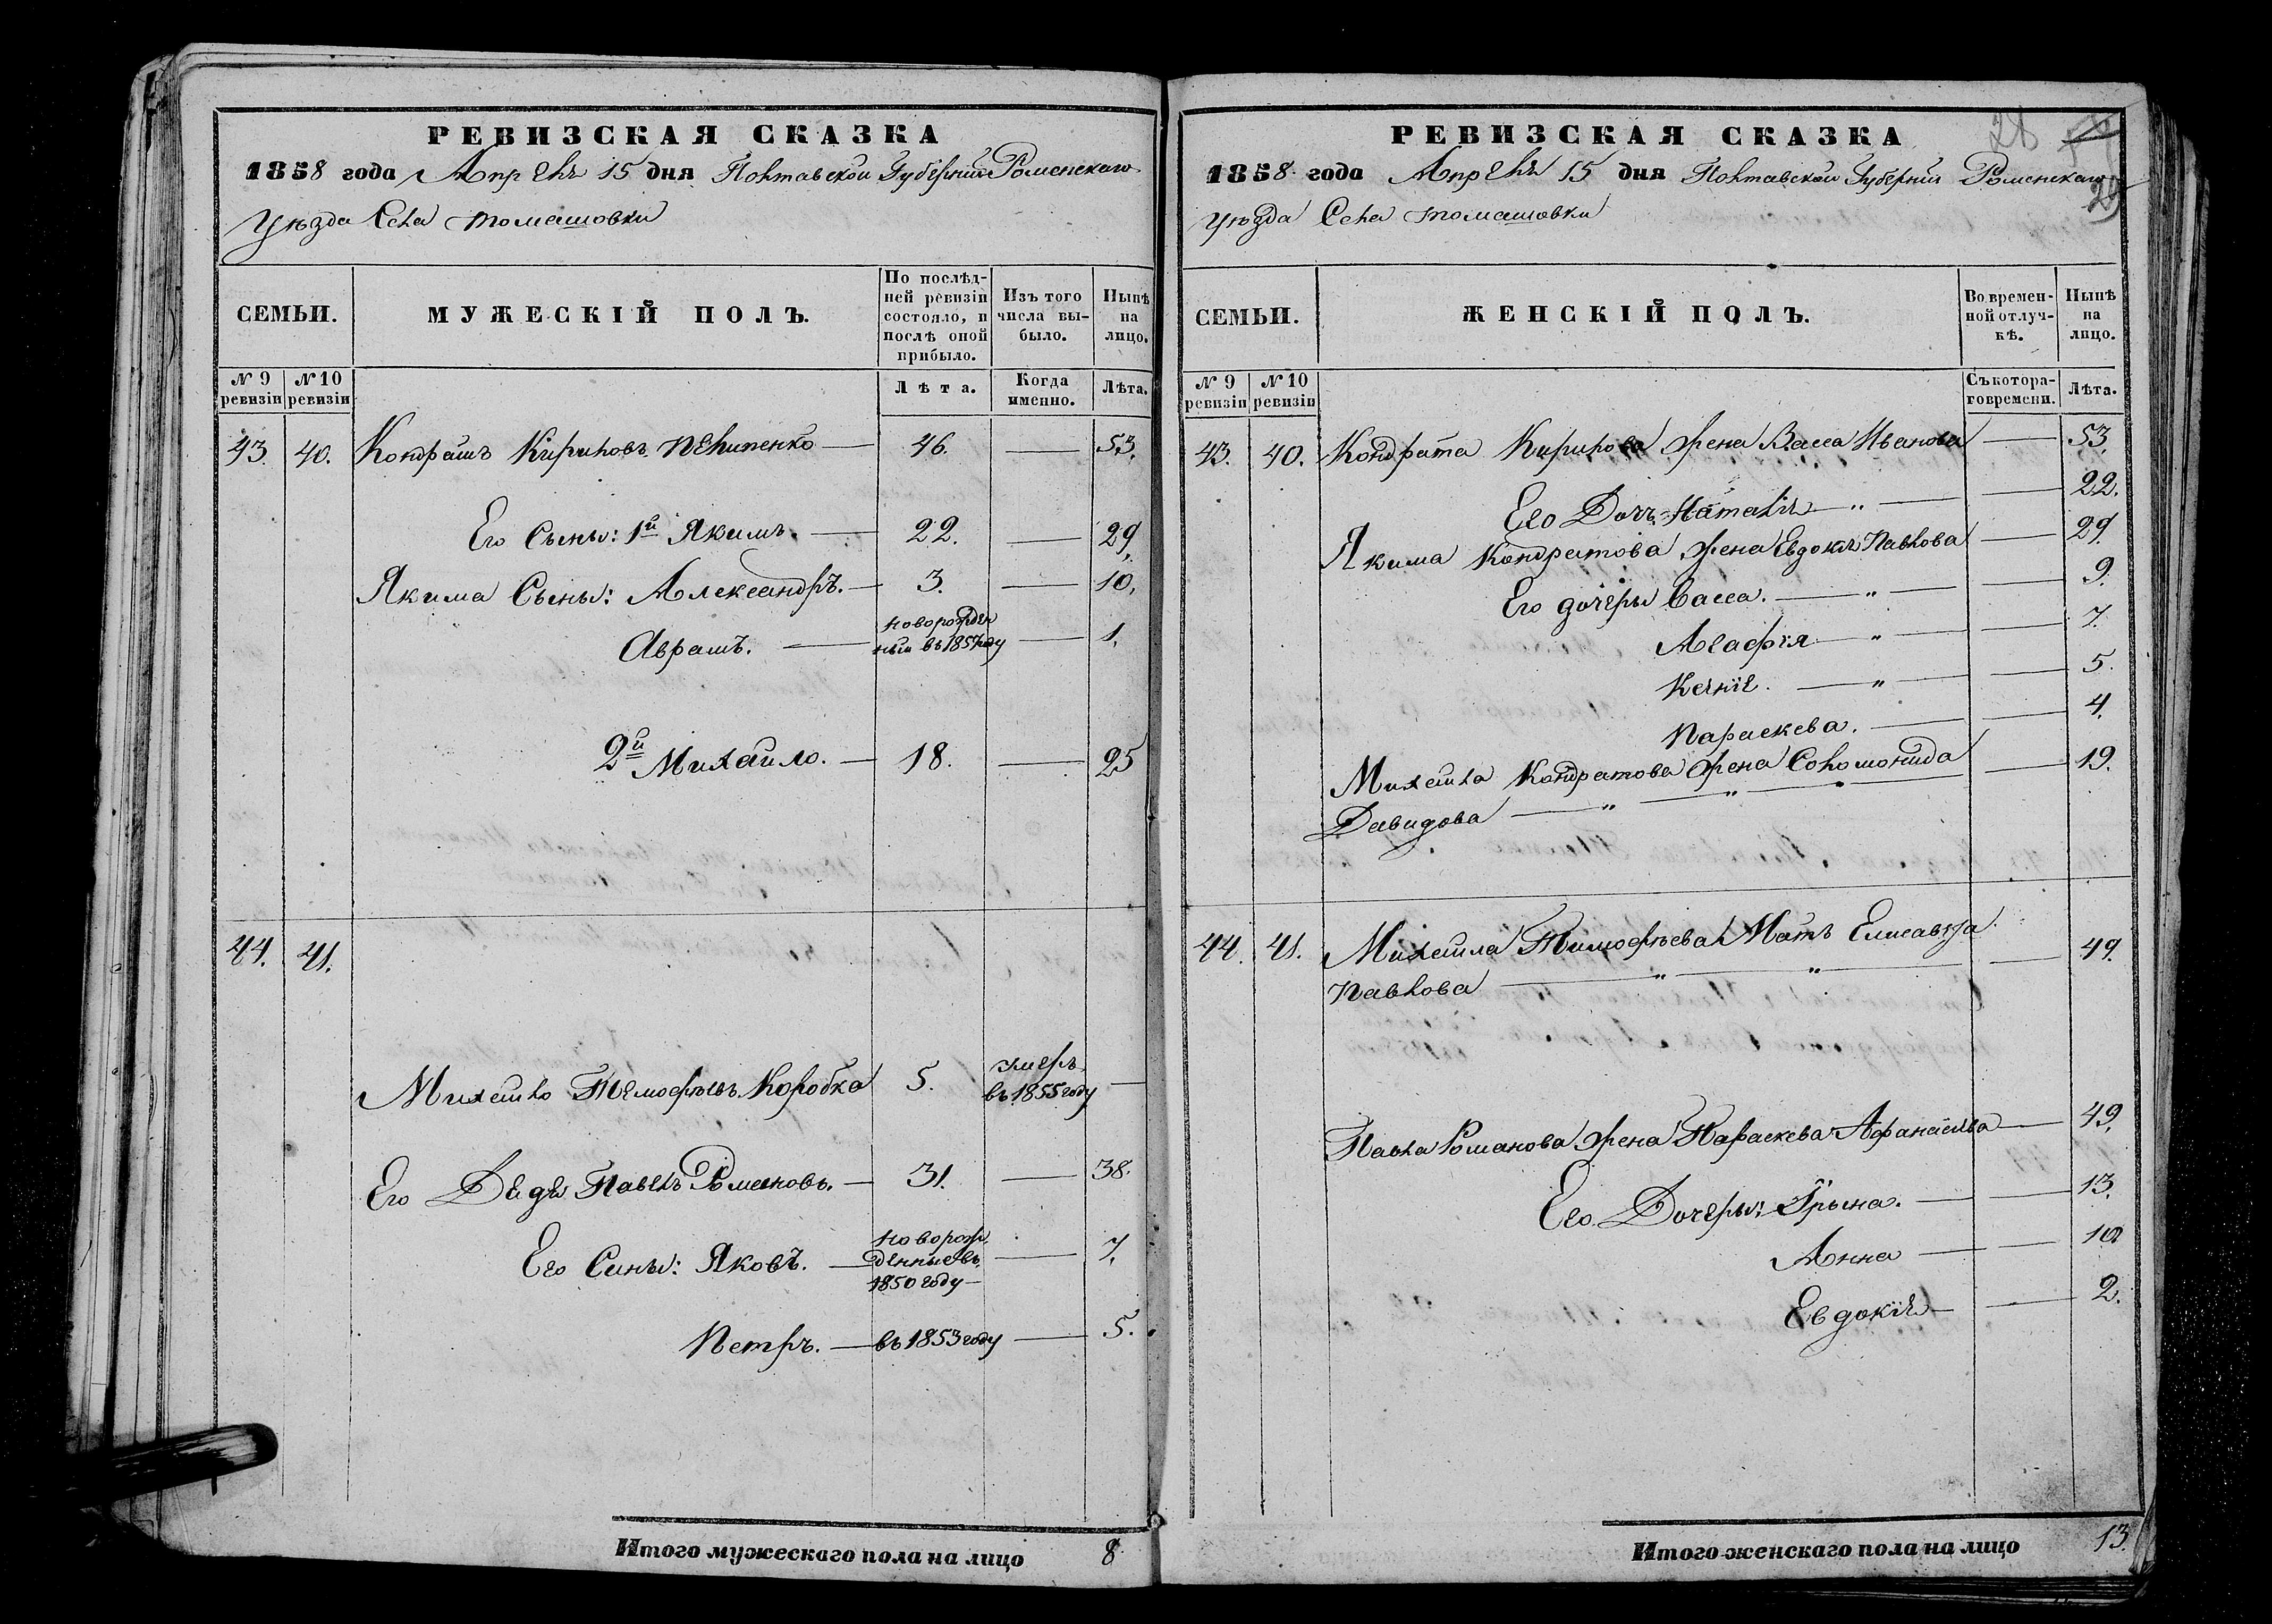 РЕВИЗСКАЯ СКАЗКА
1858 года Апреля 15 дня Полтавской Губернии Роменскаго
Уѣзда Села томашовки
СЕМЬИ.
МУЖЕСКІЙ ПОЛЪ.
По послѣд-
ней ревизіи
состояло, и
послѣ оной
прибыло.
Изъ того
числа вы-
было.
Нынѣ
на
лицо.
№ 9 ревизіи
№ 10 ревизіи
Лѣта.
Когда именно.
Лѣта.
43. 40. Кондратъ Кириловъ пелипенко — 46. — 53.
Его Сыны: 1й Якимъ. — 22. — 29.
Якима Сыны: Александръ. — 3. — 10.
новорожден
Аврамъ. — ный въ 1857 году — 1.
2й Михайло. — 18. — 25
44. 41.
умеръ
Михайло Темофѣевъ Коробка 5. въ 1855 году —
Его Дедя Павелъ Романовъ. — 31. — 38.
Его Сины: Яковъ. — новорож
денные въ — 7.
1850 году —
Петръ. — въ 1853 году — 5.
Итого мужескаго пола на лицо 8.
28
29
РЕВИЗСКАЯ СКАЗКА
1858 года Апреля 15 дня Полтавской Губернии Роменскаго
Уѣзда Села томашовки
СЕМЬИ.
ЖЕНСКІЙ ПОЛЪ.
Во времен-
ной отлуч-
кѣ.
Нынѣ
на
лицо.
№ 9 ревизіи
№ 10 ревизіи
Съ котора-
го времени.
Лѣта.
43. 40. Кондрата Кирилова жена Васса Иванова — 53.
Его Дочь Наталія — " — 22.
Якима Кондратова жена Евдокія Павлова — 29.
Его дочеры Васса. — " — 9.
Агафія — " — 7.
Ксенія. — " — 5.
Параскева. — 4.
Михайла Кондратова жена Соломонида — 19.
Давидова — " — " —
44. 41. Михайла Тимофѣева Мать Елисавѣта
Павлова — " — " — 49.
Павла Романова жена Параскева Афанасіева — 49.
Его Дочеры: Ірына. — 13.
Анна — 10
Евдокія — 2.
Итого женскаго пола на лицо 13.